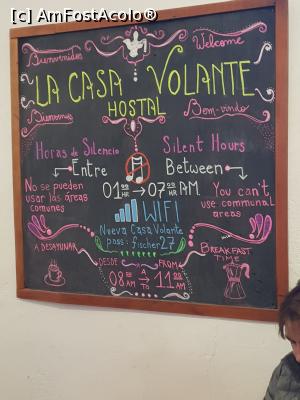 [c] AmFostAcolo®
Bienvenides
Welcome
LA CASA VOLANTE
HOSTAL
Bienvenus
Bem-vindo
Horas de Silencio
Silent Hours
Entre
Between
01:00 HR → 07:00 AM
No se pueden
usar las áreas
comunes
You can't
use communal
areas
WIFI
Nueva Casa Volante
pass: fischer27
A DESAYUNAR
BREAKFAST
TIME
DESDE
FROM
08:00 AM
A
TO
11:00 AM